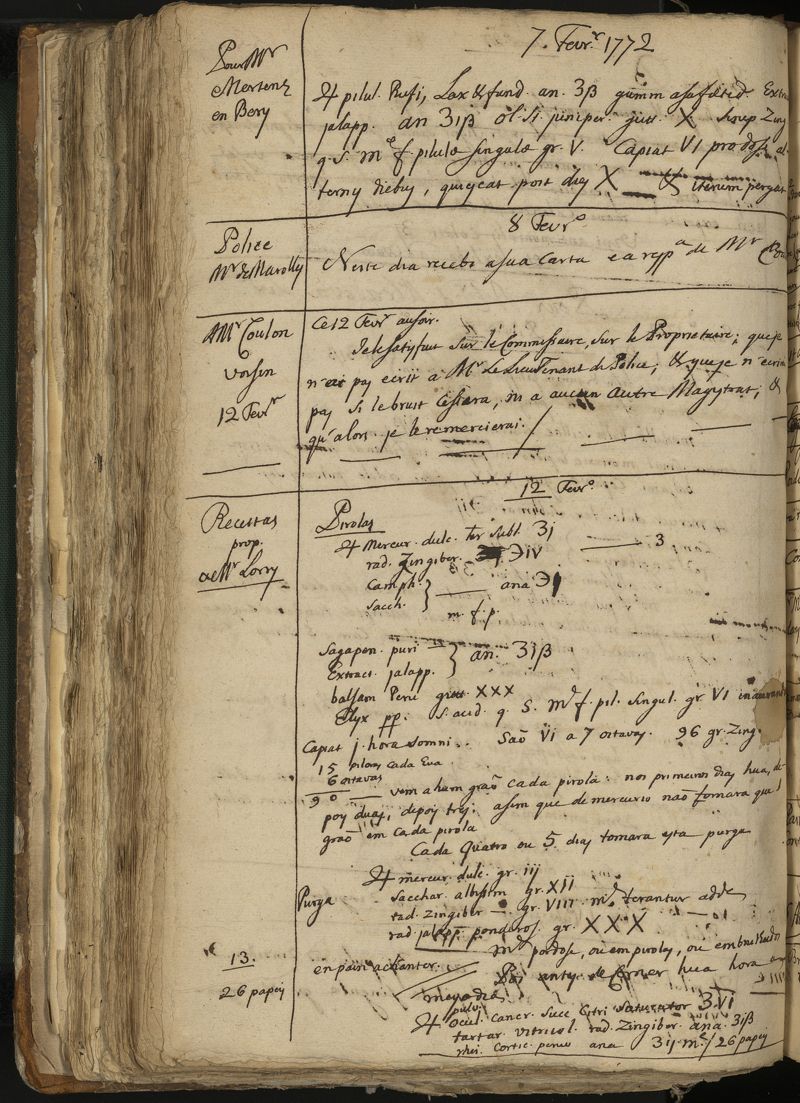 7. Fevr.r 1772
Pour Mr
Mertens
en Bery
♃ pilul. Rufi, Lax & fund. an. ʒß gumm asafoetid. Extr
jalapp. an ʒiß ol. st. juniper. gutt. X Sirup Zing
q. s. m.e f. pilulae singulae gr. V. Capiat VI pro dosi al
ternis diebus, quiescat post dies X & iterum pergat
8 Fevr.o
Police
Mr de Marolles
Neste dia recebo a sua Carta e a resp.ta de Mr
Mr Coulon
voisin
12 Fevr.r
Ce 12 Fevr. au soir.
Je le satisfait sur le Commissaire, sur le Proprietaire; que je
n'ai pas ecrit à Mr. Le Lieutenant de Police; & que je n'ecrirai
pas si le bruit cessera, ni a aucun autre Magistrat; &
qu'alors je le remercierai.
12 Fevr.o
Recettas
prop.
a Mr Lorry
Pirolas
♃ Mercur. dulc. ter subl. ʒj
rad. Zingiber. ℈iv 3
Camph.
Sacch. } ana ℈j
m. f. p.
Sagapen. puri
Extract. jalapp. } an. ʒiß
balsam Peru gutt. XXX
Elyx pp. s. acid. q. s. m.e f. pil. singul. gr VI
Capiat j. hora somni. Saõ VI a 7 oitavas. 96 gr. Zing.
15 pilolas cada hua
6 oitavas
90 vem a ham graõ cada pirola: nos primeiros dias hua, de
poys duas, depoys tres: asim que de mercurio naõ tomara que 1
graõ em cada pirola
Cada Quatro ou 5 dias tomara esta purga
Purga
♃ mercur. dulc. gr. iij
Sacchar. albissim gr. XII
rad. Zingiber — gr. VIII m.e terantur adde
rad jalapp. ponderos. gr. XXX
m.e por dose, ou em pirolas, ou embrulhados
en pain a chanter.
antes de comer hua hora ao
meyo dia
13.
26 papeis
♃ pulv. Ocul. Cancr. Succ Citri saturator ʒVI
tartar. vitriol. rad. Zingiber. ana. ʒiß
rhei. Cortic. peruv ana ʒij. m.e / 26 papeis